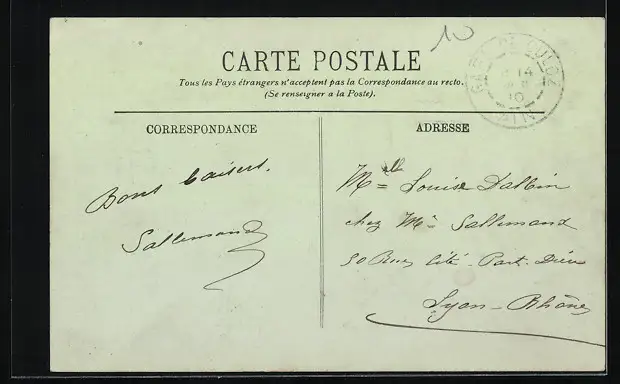 10
CARTE POSTALE
Tous les Pays étrangers n'acceptent pas la Correspondance au recto.
(Se renseigner à la Poste).
CORRESPONDANCE
ADRESSE
Bons baisers.
Sallemand
Mlle Louise Dalbin
chez Mr Sallemand
50 Rue, Cité - Part. Dieu
Lyon - Rhône
GARE DE CULOZ
14
10
AIN